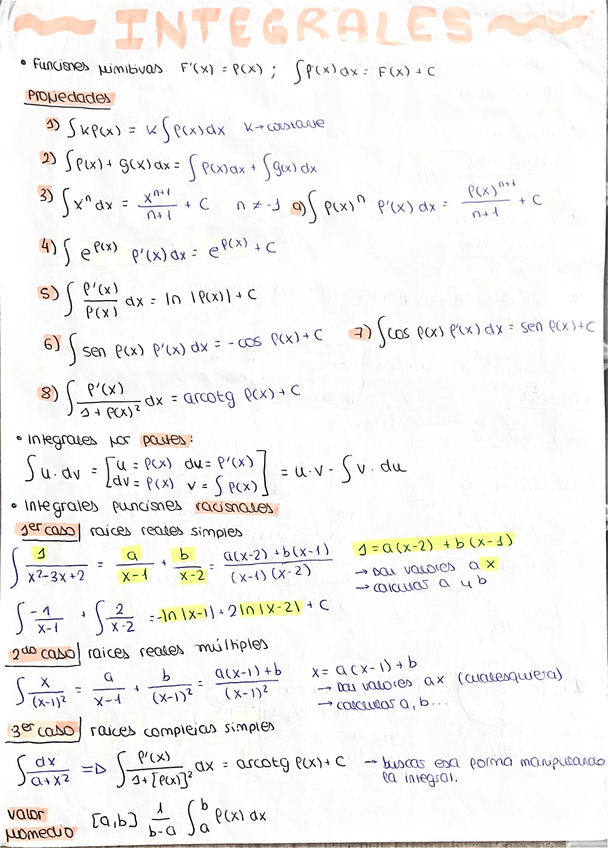 INTEGRALES
• Funciones primitivas F'(x) = f(x) ; ∫f(x)dx = F(x) + C
Propiedades
1) ∫kf(x) = k∫f(x)dx k→constante
2) ∫f(x) + g(x)dx = ∫f(x)dx + ∫g(x)dx
3) ∫xⁿ dx = xⁿ⁺¹/(n+1) + C n ≠ -1 a) ∫f(x)ⁿ f'(x)dx = f(x)ⁿ⁺¹/(n+1) + C
4) ∫e^f(x) f'(x)dx = e^f(x) + C
5) ∫ f'(x)/f(x) dx = ln |f(x)| + C
6) ∫sen f(x) f'(x)dx = -cos f(x) + C 7) ∫cos f(x) f'(x)dx = sen f(x) + C
8) ∫ f'(x)/(1 + f(x)²) dx = arcotg f(x) + C
• Integrales por partes:
∫u·dv = [u = f(x) du = f'(x)
dv = f(x) v = ∫f(x)] = u·v - ∫v·du
• Integrales funciones racionales
1er caso | raices reales simples
∫ 1/(x²-3x+2) = a/(x-1) + b/(x-2) = (a(x-2) + b(x-1))/((x-1)(x-2)) 1 = a(x-2) + b(x-1)
→ Dar valores a x
→ calcular a y b
∫ -1/(x-1) + ∫ 2/(x-2) = -ln|x-1| + 2ln|x-2| + C
2do caso | raices reales múltiples
∫ x/(x-1)² = a/(x-1) + b/(x-1)² = (a(x-1)+b)/(x-1)² x = a(x-1) + b
→ Dar valores a x (cualesquiera)
→ calcular a, b...
3er caso | raices complejas simples
∫ dx/(a+x²) => ∫ f'(x)/(1+[f(x)]²) dx = arcotg f(x) + C → buscas esa forma manipulando
la integral.
valor promedio [a,b] 1/(b-a) ∫ₐᵇ f(x)dx